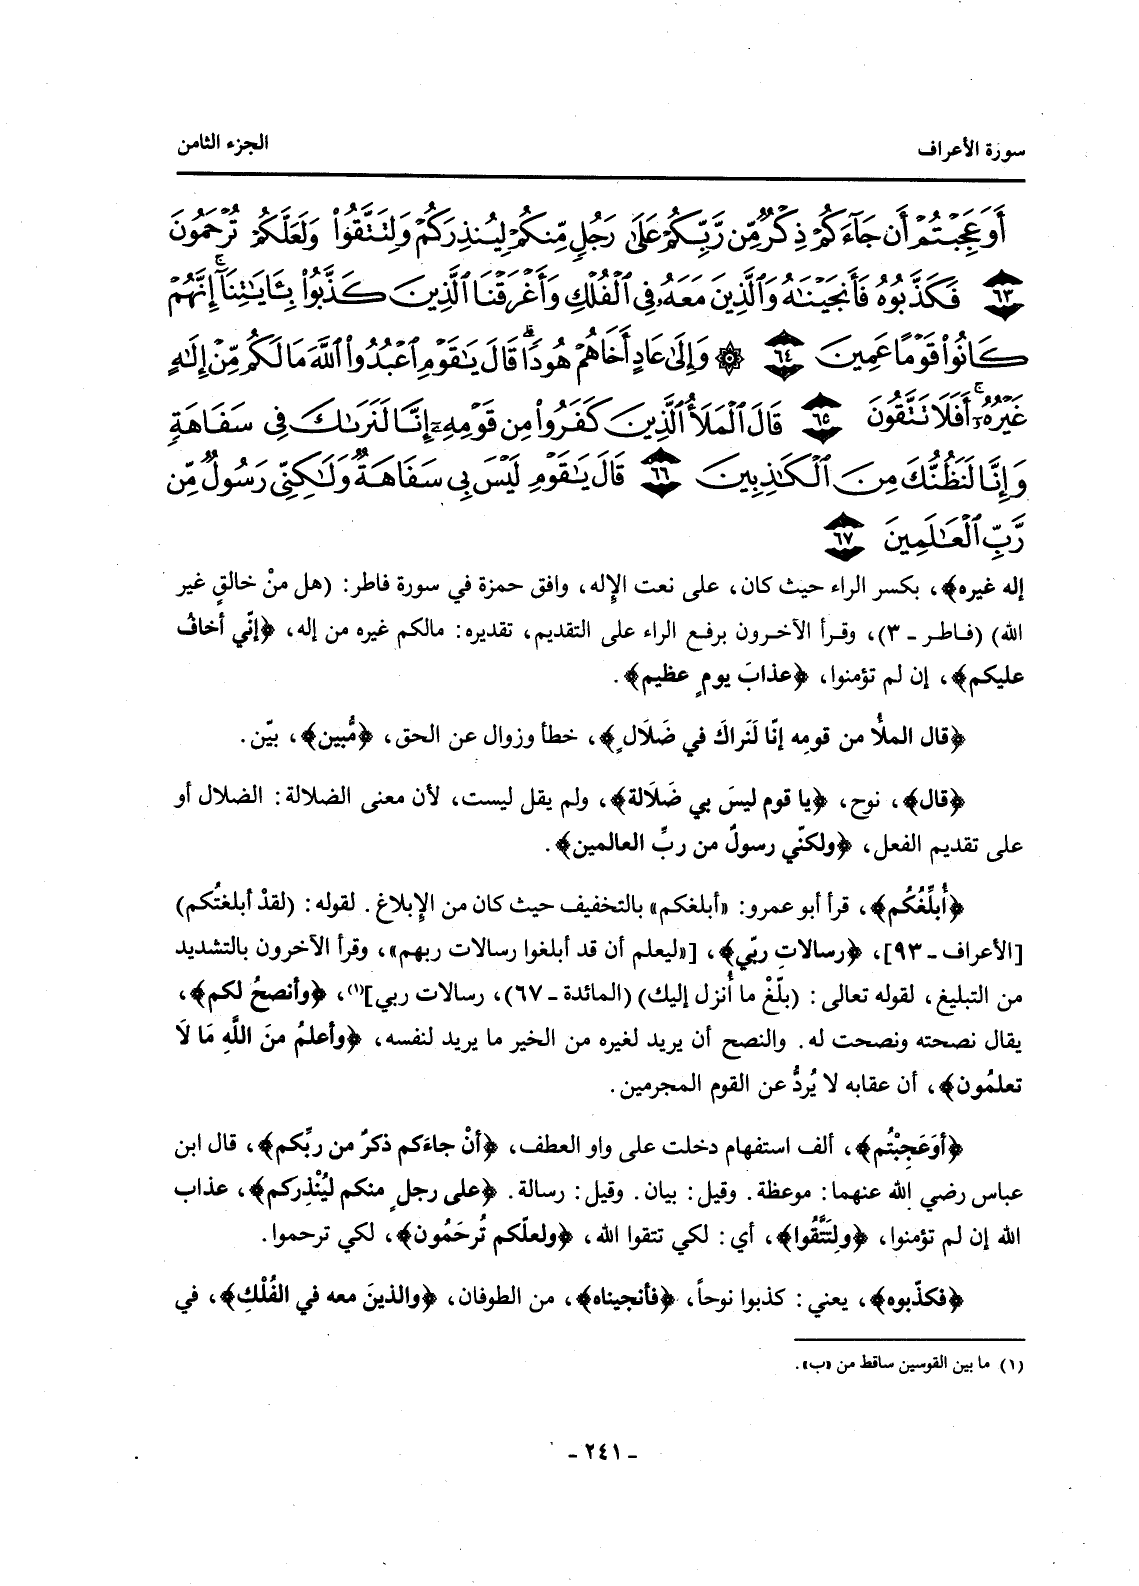 سورة الأعراف
الجزء الثامن
أَوَعَجِبْتُمْ أَن جَآءَكُمْ ذِكْرٌ مِّن رَّبِّكُمْ عَلَىٰ رَجُلٍ مِّنكُمْ لِيُنذِرَكُمْ وَلِتَتَّقُوا۟ وَلَعَلَّكُمْ تُرْحَمُونَ
٦٣ فَكَذَّبُوهُ فَأَنجَيْنَـٰهُ وَٱلَّذِينَ مَعَهُۥ فِى ٱلْفُلْكِ وَأَغْرَقْنَا ٱلَّذِينَ كَذَّبُوا۟ بِـَٔايَـٰتِنَآ ۚ إِنَّهُمْ
كَانُوا۟ قَوْمًا عَمِينَ ٦٤ ۞ وَإِلَىٰ عَادٍ أَخَاهُمْ هُودًا ۗ قَالَ يَـٰقَوْمِ ٱعْبُدُوا۟ ٱللَّهَ مَا لَكُم مِّنْ إِلَـٰهٍ
غَيْرُهُۥٓ ۚ أَفَلَا تَتَّقُونَ ٦٥ قَالَ ٱلْمَلَأُ ٱلَّذِينَ كَفَرُوا۟ مِن قَوْمِهِۦٓ إِنَّا لَنَرَىٰكَ فِى سَفَاهَةٍ
وَإِنَّا لَنَظُنُّكَ مِنَ ٱلْكَـٰذِبِينَ ٦٦ قَالَ يَـٰقَوْمِ لَيْسَ بِى سَفَاهَةٌ وَلَـٰكِنِّى رَسُولٌ مِّن
رَّبِّ ٱلْعَـٰلَمِينَ ٦٧
إله غيره﴾، بكسر الراء حيث كان، على نعت الإِله، وافق حمزة في سورة فاطر: (هل منْ خالقٍ غير
الله) (فاطر ـ ٣)، وقرأ الآخرون برفع الراء على التقديم، تقديره: مالكم غيره من إله، ﴿إنّي أخافُ
عليكم﴾، إن لم تؤمنوا، ﴿عذابَ يومٍ عظيم﴾.
﴿قال الملأُ من قومِه إنّا لَنَراكَ في ضَلَالٍ﴾، خطأ وزوال عن الحق، ﴿مُّبين﴾، بيّن.
﴿قال﴾، نوح، ﴿يا قوم ليسَ بي ضَلَالة﴾، ولم يقل ليست، لأن معنى الضلالة: الضلال أو
على تقديم الفعل، ﴿ولكنّي رسولٌ من ربِّ العالمين﴾.
﴿أُبلِّغُكُم﴾، قرأ أبو عمرو: «أبلغكم» بالتخفيف حيث كان من الإِبلاغ. لقوله: (لقدْ أبلغتُكم)
[الأعراف ـ ٩٣]، ﴿رسالاتِ ربّي﴾، [«ليعلم أن قد أبلغوا رسالات ربهم»، وقرأ الآخرون بالتشديد
من التبليغ، لقوله تعالى: (بلّغْ ما أُنزل إليك) (المائدة ـ ٦٧)، رسالات ربي](١)، ﴿وأنصحُ لكم﴾،
يقال نصحته ونصحت له. والنصح أن يريد لغيره من الخير ما يريد لنفسه، ﴿وأعلمُ منَ اللَّهِ مَا لَا
تعلمُون﴾، أن عقابه لا يُردُّ عن القوم المجرمين.
﴿أوَعَجِبْتُم﴾، ألف استفهام دخلت على واو العطف، ﴿أنْ جاءَكم ذكرٌ من ربِّكم﴾، قال ابن
عباس رضي الله عنهما: موعظة. وقيل: بيان. وقيل: رسالة. ﴿على رجلٍ منكم ليُنْذِركم﴾، عذاب
الله إن لم تؤمنوا، ﴿ولِتَتَّقُوا﴾، أي: لكي تتقوا الله، ﴿ولعلّكم تُرحَمُون﴾، لكي ترحموا.
﴿فكذّبوه﴾، يعني: كذبوا نوحاً، ﴿فأنجيناه﴾، من الطوفان، ﴿والذينَ معه في الفُلْكِ﴾، في
(١) ما بين القوسين ساقط من «ب».
ـ ٢٤١ ـ